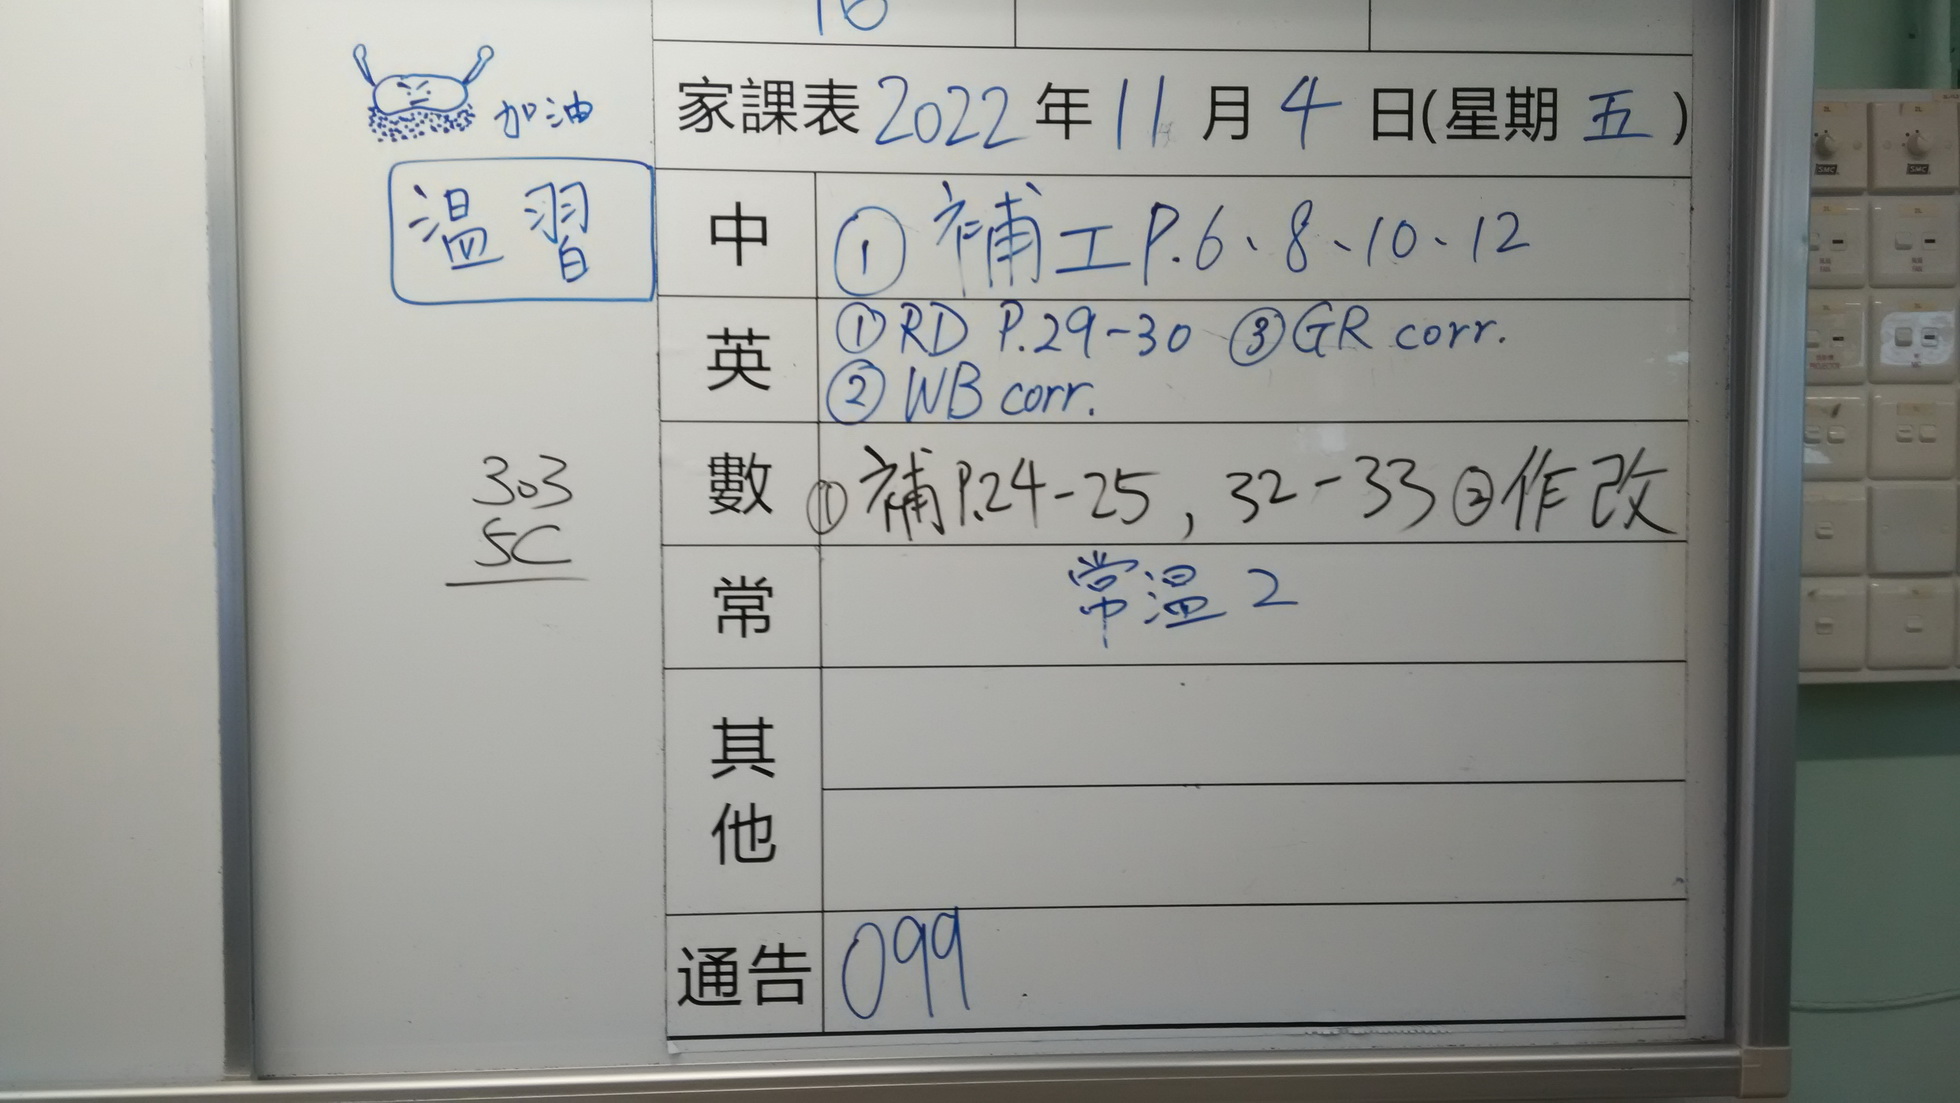 16
加油
家課表 2022 年 11 月 4 日(星期 五 )
溫習
中 ① 補工 P.6、8、10、12
英 ① RD P.29-30 ③ GR corr.
② WB corr.
數 ① 補 P.24-25, 32-33 ② 作改
303
5C
常 常溫 2
其他
通告 099